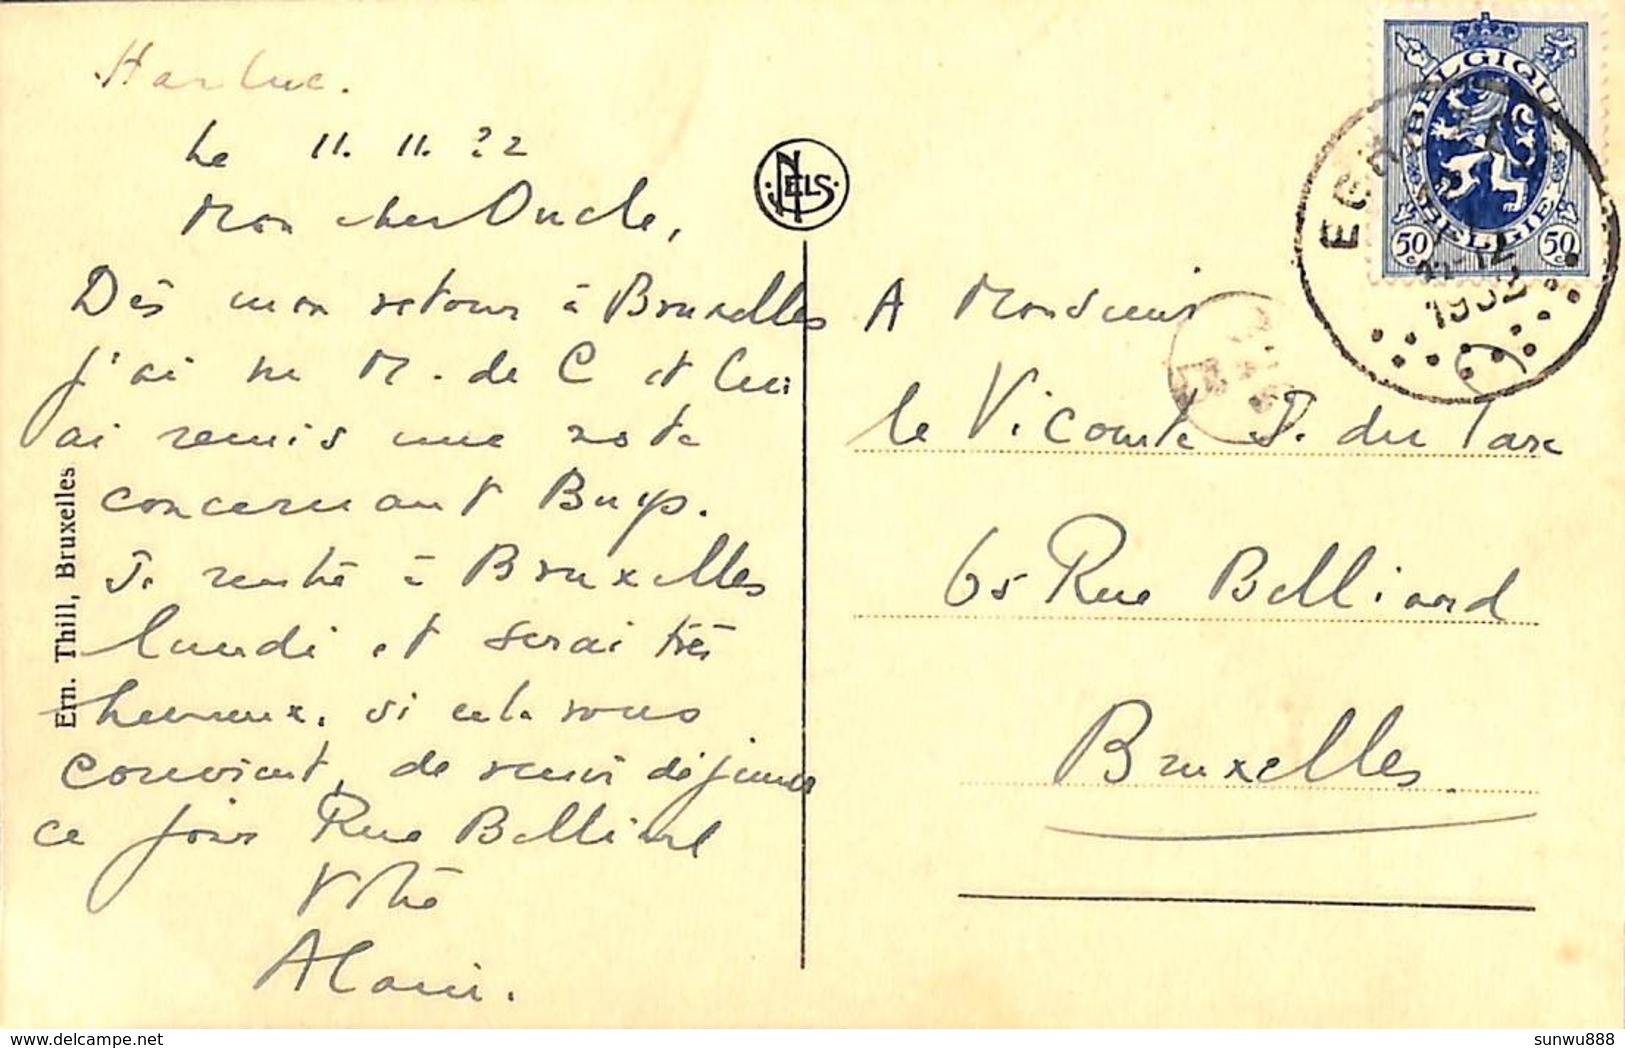 Harlue.
Le 11. 11. 32
Mon cher Oncle,
Dès mon retour à Bruxelles
j'ai vu M. de C et lui
ai remis une note
concernant Buys.
Je rentre à Bruxelles
lundi et serai très
heureux, si cela vous
convient, de venir déjeuner
ce jour Rue Belliard
Votre
Alain.
Ern. Thill, Bruxelles
NELS
A Monsieur
le Vicomte J. du Parc
65 Rue Belliard
Bruxelles
BELGIQUE
BELGIE
50 c
50 c
1932
delcampe.net
sunwu888